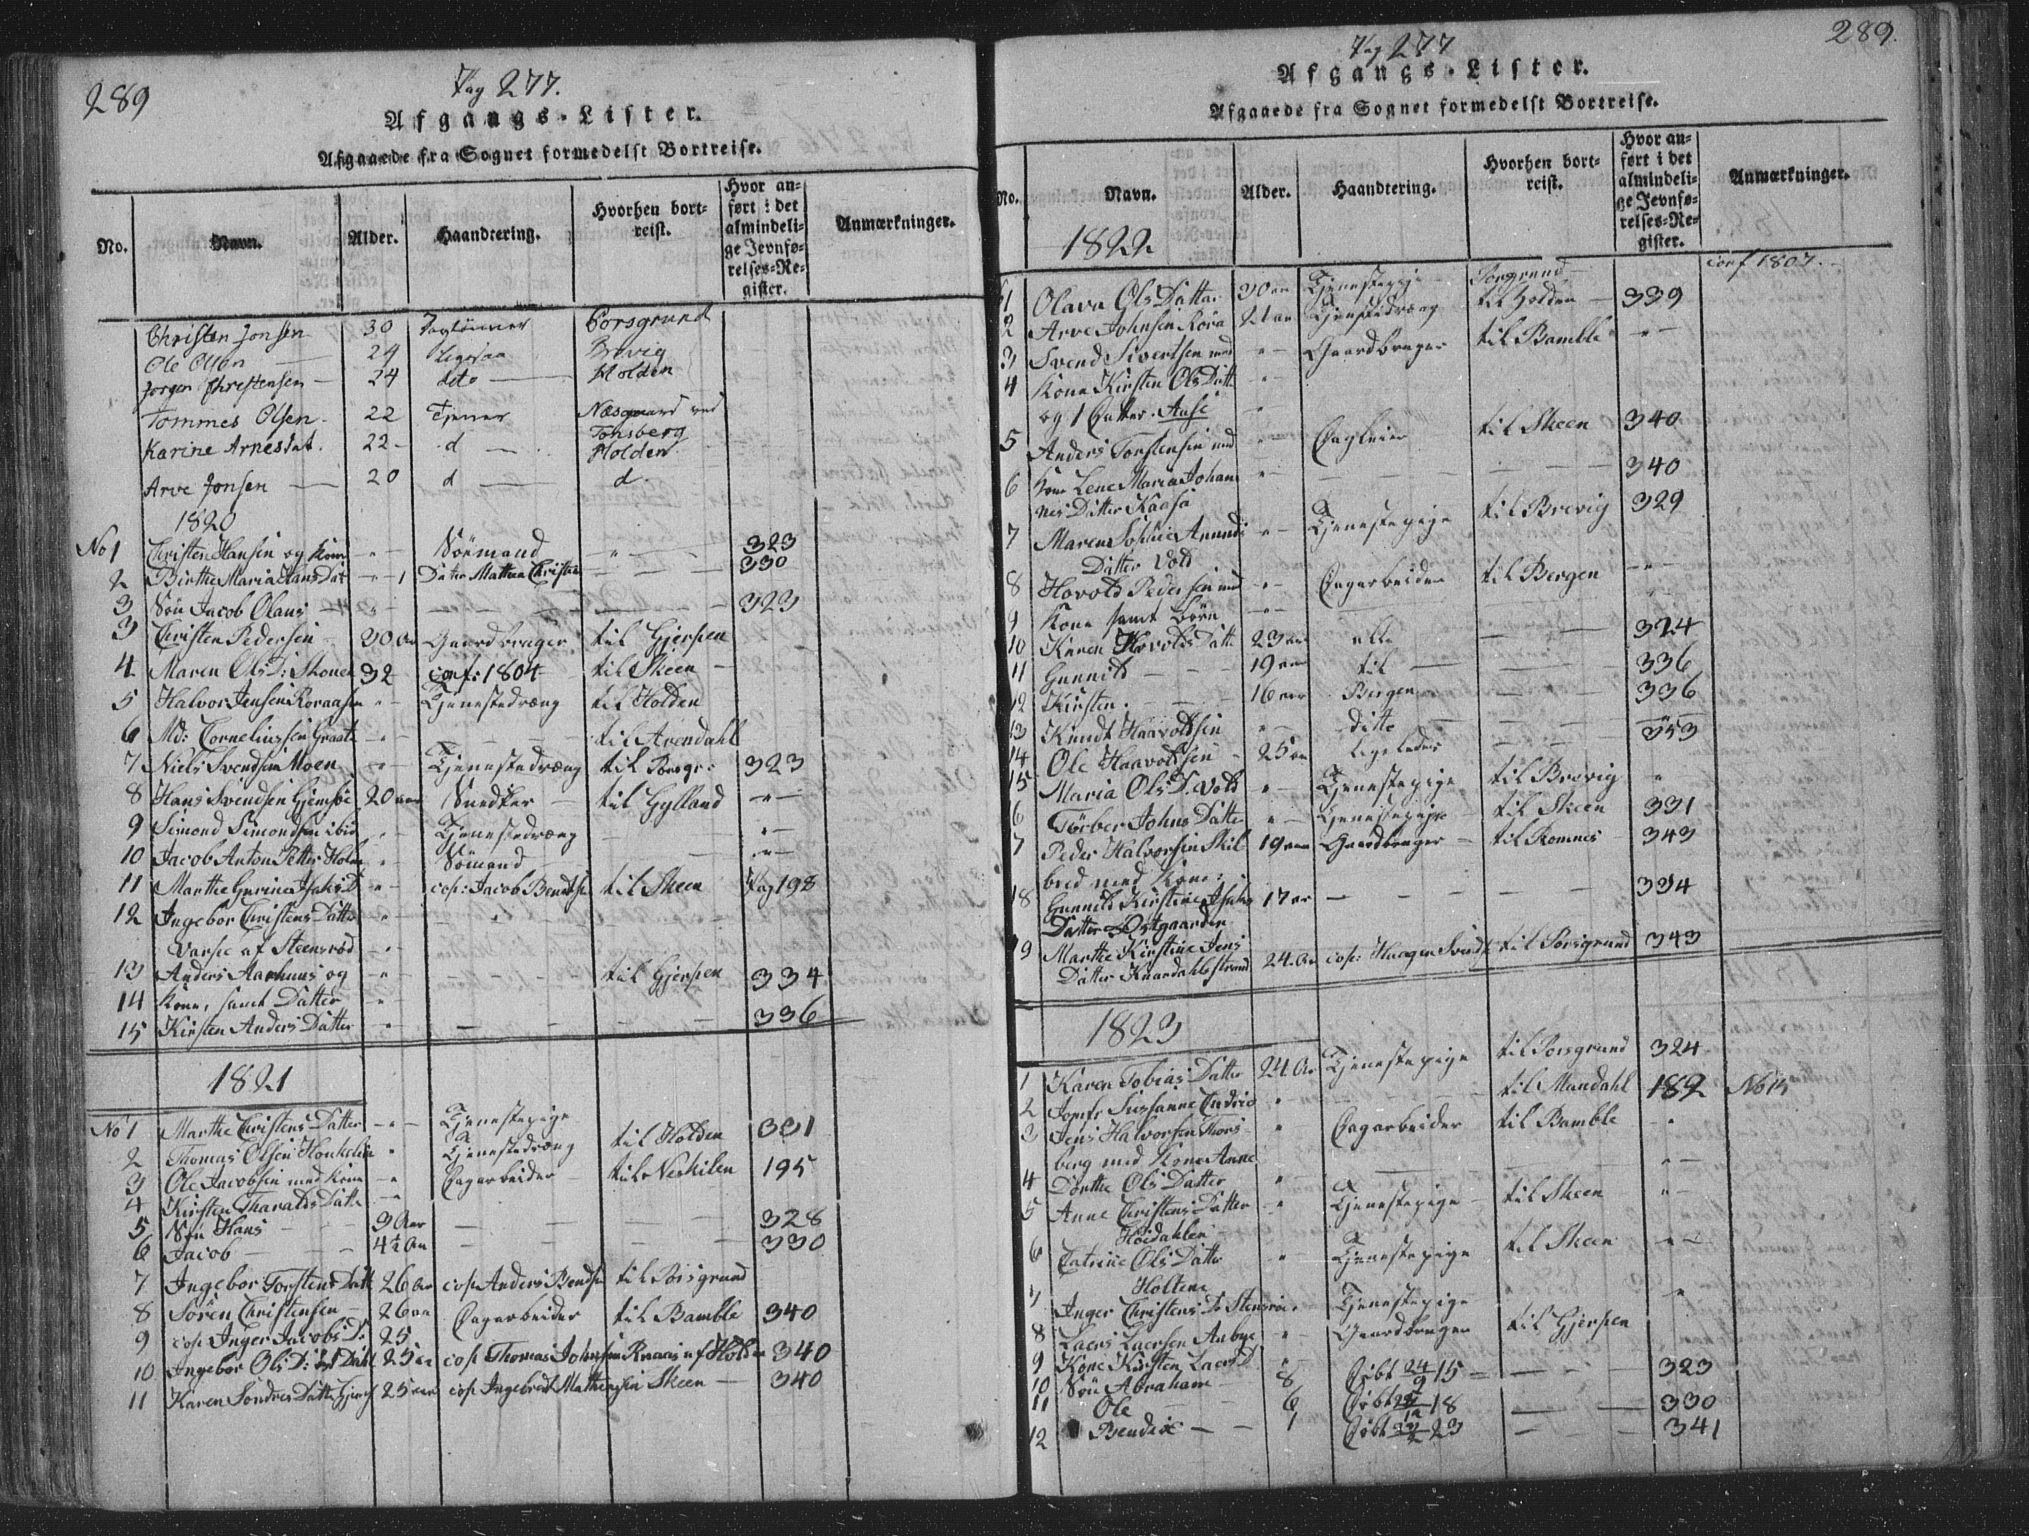 289
Pag 277.
Afgangs-Lister.
Afgaaede fra Sognet formedelst Bortreise.
No. Navn. Alder. Haandtering. Hvorhen bortreist. Hvor anført i det almindelige Jevnførelses-Register. Anmærkninger.
Christen Jonsen 30 Porsgrund
Ole Olsen 24 Brevig
Jørgen Christensen 24 dito Holden
Tommes Olsen 22 Tjener Næsgaard ved Tønsberg
Karine Arnesdat. 22 d Holden
Arve Jonsen 20 d d.
1820
No 1 Christen Hansen og Kone " Sömand " 323
2 Birthe Maria Hans Dat " 1 Dater Mathea Christen 330
3 Sön Jacob Olaus " 323
3 Christen Pedersen 30 Aar Gaardbruger til Gjerpen
4 Maren Ols D: 32 conf: 1804 til Skeen
5 Halvor Jensen " Tjenestedræng til Holden
6 Md: Corneliussen " til Arendahl
7 Niels Svendsen Moen " Tjenestedræng til Porsgr: 323
8 Hans Svendsen Gjemsöe 20 aar Snedker til Gylland "
9 Simond Simondsen ibid " Tjenestedræng "
10 Jacob Anton Petter Holm " Sömand "
11 Marthe Gurine Isaks D " cop: Jacob Bendtsen til Skeen Pag 198
12 Ingebor Christens Datter "
Varpe af Steensröd "
13 Anders Aarhuus og " til Gjerpen 334
14 Kone, samt Datter "
15 Kirsten Anders Datter " 336
1821
No 1 Marthe Christens Datter " Tjenestepige til Holden 331
2 Thomas Olsen " Tjenestedræng
3 Ole Jacobsen med Kone " Dagarbeider til Neskilen 195
4 Kirsten Tharalds Datt "
5 Sön Hans 9 Aar 328
6 Jacob 4½ Aar 330
7 Ingebor Torstens Datt 26 Aar cop Anders Bendsen til Porsgrund
8 Sören Christensen 26 aar Dagarbeider til Bamble 340
9 cop Inger Jacobs D: 25
10 Ingebor Ols D: 25 aar cop Thomas Johnsen af Holden 340
11 Karen Sondres Datter 25 aar cop Ingebret Mathisen Skeen 340
289.
Pag 277
Afgangs-Lister.
Afgaaede fra Sognet formedelst Bortreise.
No. Navn. Alder. Haandtering. Hvorhen bortreist. Hvor anført i det almindelige Jevnførelses-Register. Anmærkninger.
1822
1 Olava Ols Datter 30 aar Tjenestepige Porsgrund conf 1807.
2 Arve Johnsen Rora 21 aar Tjenestedræng til Holden 339
3 Svend Sivertsen med " Gaardbruger til Bamble "
4 Kone Kirsten Ols Datt "
og 1 Datter. Anse "
5 Anders Torstensen med " Dagleier til Skeen 340
6 Kone Lene Maria Johan " 340
nes Datter Kaasa
7 Maren Sophie Amunds " Tjenestepige til Brevig 329
Datter Vold
8 Hovold Pedersen med " Dagarbeider til Bergen "
9 Kone samt Börn "
10 Karen Hovolds Datt 23 aar alle 324
11 Gunnild 19 aar til 336
12 Kirsten 16 aar Bergen 336
13 Knudt Haavoldsen " ditte 353
14 Ole Haavoldsen 25 aar ligeledes
15 Maria Ols D. Vold " Tjenestepige til Brevig "
6 Törber Johns Datte " Tjenestepige til Skeen 331
7 Peder Halvorsen Skil 19 aar Gaardbruger til Romnes 343
bred med Kone:
18 Gunnild Kirstine Isaks 17 ar 334
Datter Östgaarden
19 Marthe Kirstine Jens 24 Aar cop: Haagen Svends til Porsgrund 343
Datter Knardahlsstrand
1823
1 Karen Tobias Datter 24 Aar Tjenestepige til Porsgrund 324
2 Jomfr Susanne " til Mandahl 182 No 15
3 Jens Halvorsen Thors " Dagarbeider til Bamble "
berg med Kone Anne
4 Dorthe Ols Datter " "
5 Anne Christens Datter " Tjenestepige til Skeen "
Höidahlen
6 Catrine Ols Datter " Tjenestepige til Skeen "
Holtene
7 Inger Christens D Stensröe " Tjenestepige "
8 Laers Laersen Aabye " Gaardbruger til Gjerpen
9 Kone Kirsten Laers D
10 Sön Abraham 8 Döbt 24/9 15 323
11 Ole 6 Döbt 18 330
12 Bendix 1 Döbt 23 341